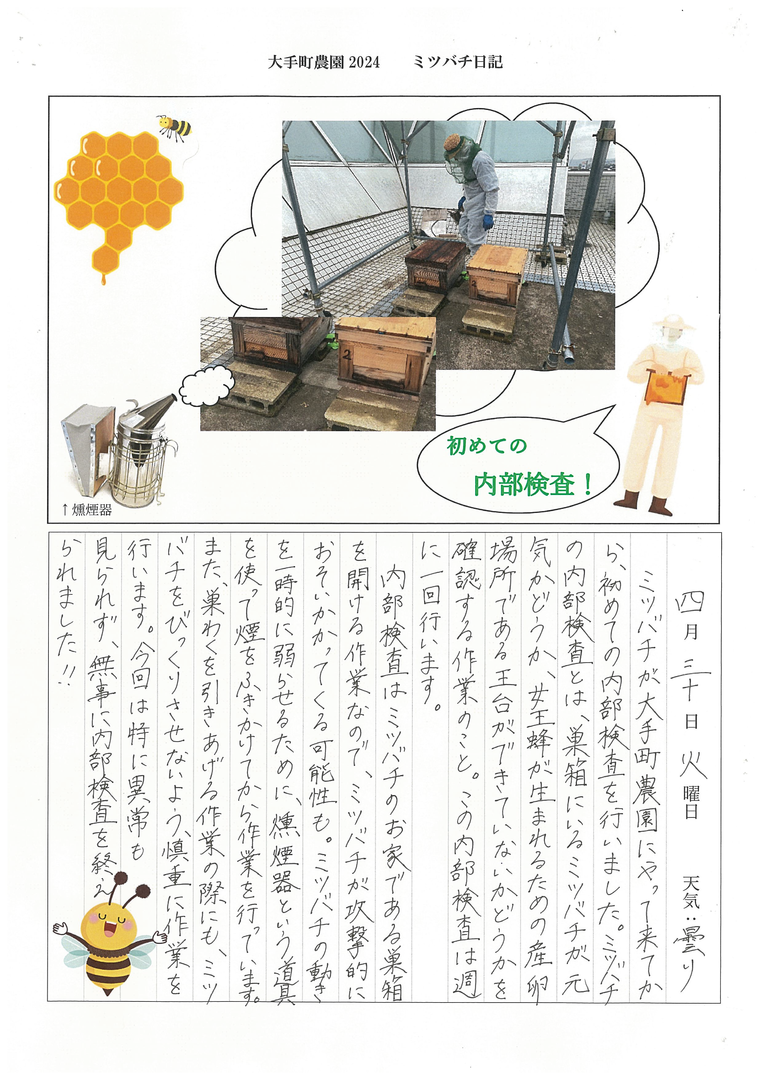 大手町農園2024　ミツバチ日記
初めての
内部検査！
↑燻煙器
2
四月三十日火曜日　天気：曇り
ミツバチが大手町農園にやって来てか
ら、初めての内部検査を行いました。ミツバチ
の内部検査とは、巣箱にいるミツバチが元
気かどうか、女王蜂が生まれるための産卵
場所である王台ができていないかどうかを
確認する作業のこと。この内部検査は週
に一回行います。
内部検査はミツバチのお家である巣箱
を開ける作業なので、ミツバチが攻撃的に
おそいかかってくる可能性も。ミツバチの動き
を一時的に弱らせるために、燻煙器という道具
を使って煙をふきかけてから作業を行っています。
また、巣わくを引きあげる作業の際にも、ミツ
バチをびっくりさせないよう、慎重に作業を
行います。今回は特に異常も
見られず、無事に内部検査を終え
られました!!